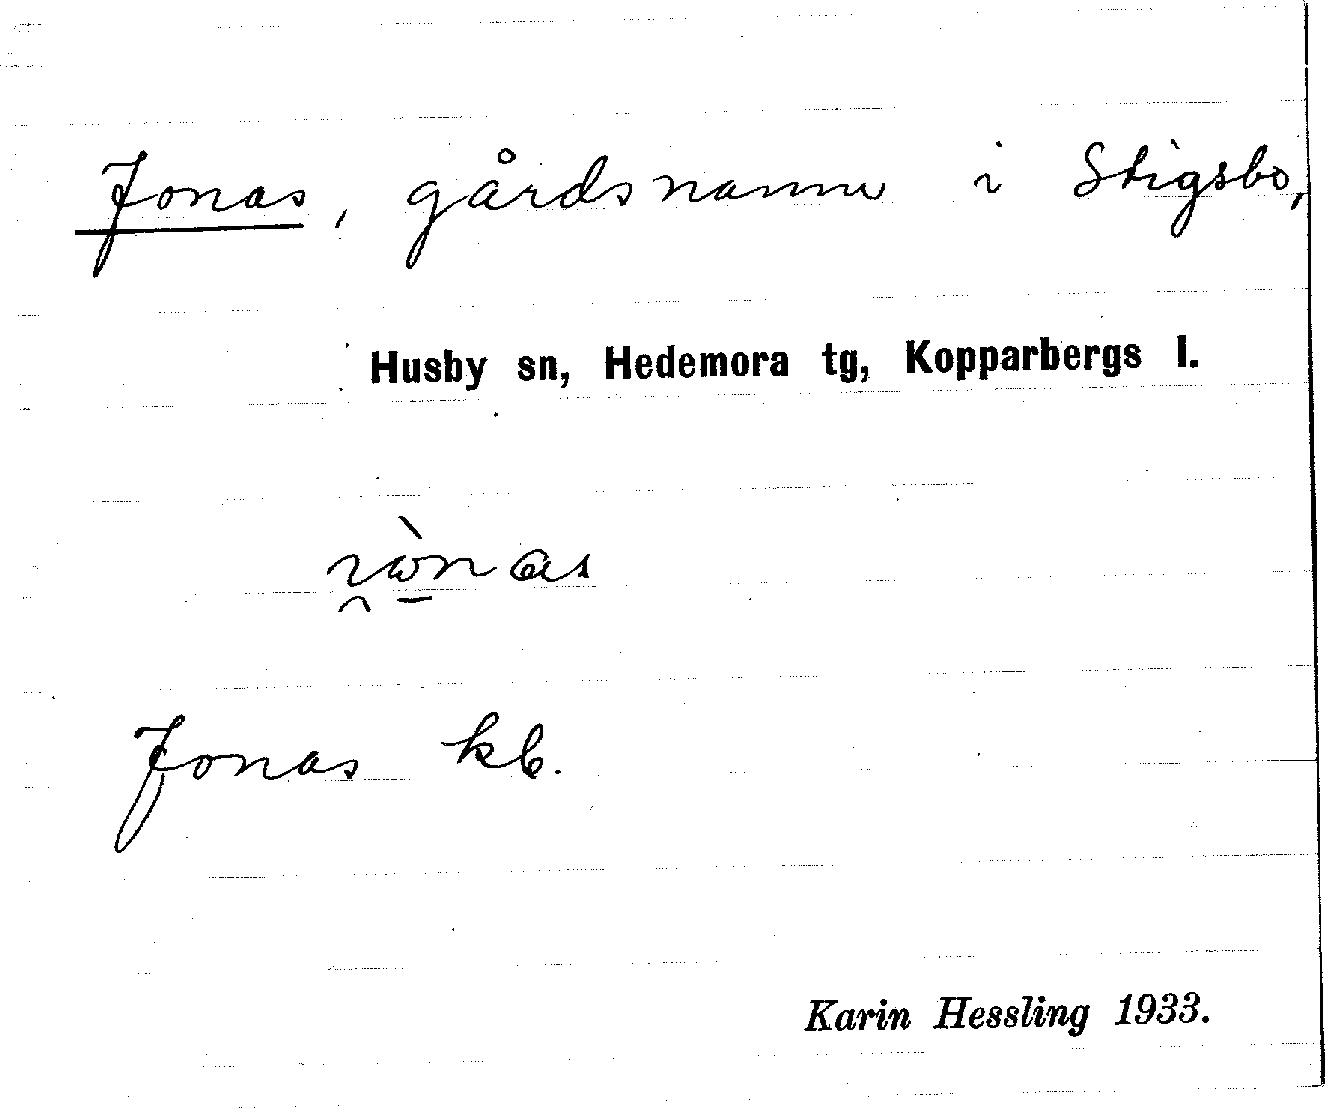 Jonas, gårdsnamn i Stigsbo,
Husby sn, Hedemora tg, Kopparbergs l.
Jonas kb.
Karin Hessling 1933.